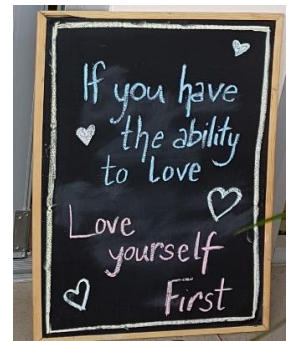 If you have
the ability
to Love
Love
yourself
First